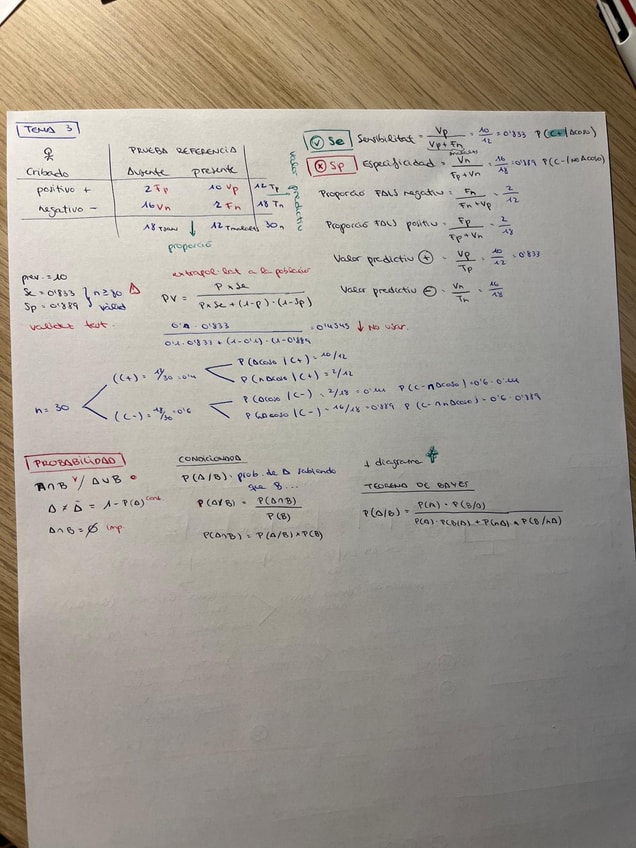 TEMA 3
PRUEBA REFERENCIA
Cribado Ausente presente
positivo + 2 Fp 10 Vp 12 Tp
negativo - 16 Vn 2 Fn 18 Tn
18 12 30 n
proporció
valor predictiu
V Se Sensibilitat = Vp / Vp + Fn = 10/12 = 0'833 P(C+/Acoso)
X Sp Especificidad = Vn / Fp + Vn = 16/18 = 0'889 P(C-/no Acoso)
Proporció FALS negativ = Fn / Fn + Vp = 2/12
Proporció FALS positiv = Fp / Fp + Vn = 2/18
Valor predictiu + = Vp / Tp = 10/12 = 0'833
Valor predictiu - = Vn / Tn = 16/18
prev. = 10
Se = 0'833
Sp = 0'889
n ≥ 30
validesa test.
extrapol·lat a la población
PV = P x Se / P x Se + (1-p) · (1-Sp)
0'1 · 0'833 / 0'1 · 0'833 + (1-0'1) · (1-0'889 = 0'4545 ↓ No usar.
n = 30
(C+) = 12/30 = 0'4
P(Acoso/C+) = 10/12
P(nAcoso/C+) = 2/12
(C-) = 18/30 = 0'6
P(Acoso/C-) = 2/18 = 0'111 P(C-∩Acoso) = 0'6 · 0'111
P(nAcoso/C-) = 16/18 = 0'889 P(C-∩nAcoso) = 0'6 · 0'889
PROBABILIDAD
A∩B y / A∪B o
A ≠ Ā = 1 - P(A) cont
A∩B = ∅ imp.
CONDICIONADA
P(A/B) · prob. de A sabiendo
que B...
P(A/B) = P(A∩B) / P(B)
P(A∩B) = P(A/B) x P(B)
+ diagrama
TEOREMA DE BAYES
P(A/B) = P(A) · P(B/A) / P(A) · P(B/A) + P(nA) x P(B/nA)